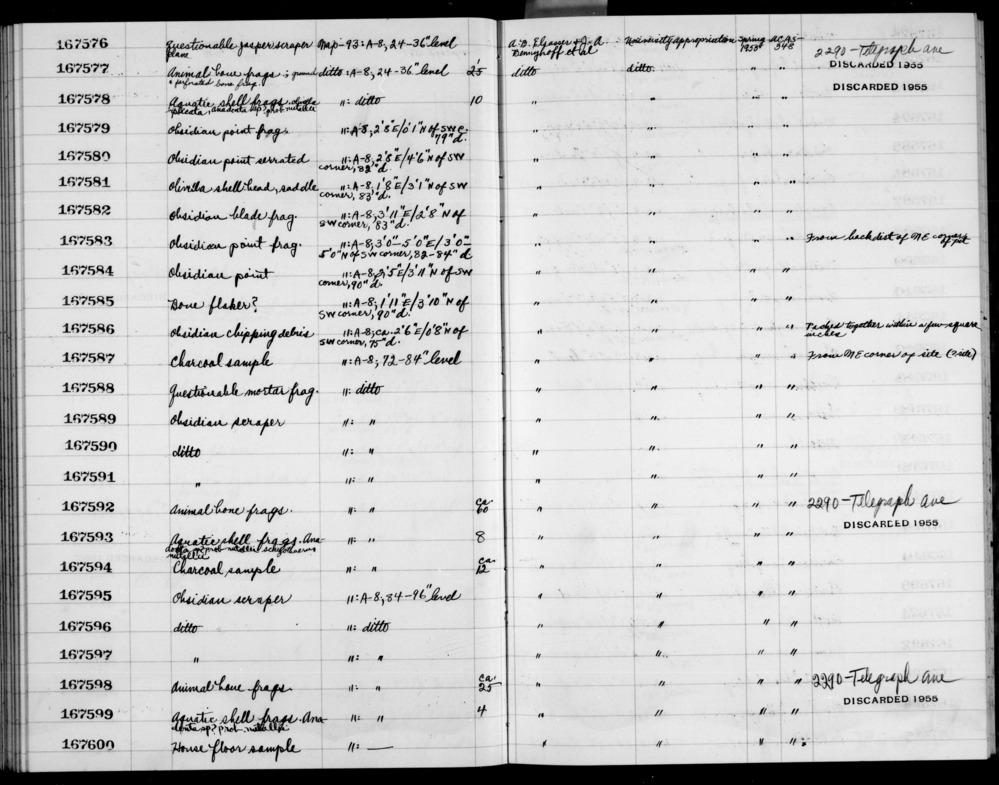 167576 Questionable jasper scraper Nap-93: A-8, 24-36" level A. B. Elsasser & J. A. University appropriation Spring AC. AS-
plane Bennyhoff et al 1953 348 2290-Telegraph Ave
167577 Animal bone frags; ground ditto: A-8, 24-36" level 25 ditto ditto " " DISCARDED 1955
+ perforated bone frag.
167578 Aquatic shell frags. ": ditto 10 " " " " DISCARDED 1955
167579 Obsidian point frag. ": A-8, 2'8"E/0'1"N of SW c. " " " "
79" d.
167580 Obsidian point serrated ": A-8, 2'8"E/4'6"N of SW " " " "
corner, 82" d.
167581 Olivella shell bead, saddle ": A-8, 1'8"E/3'1"N of SW " " " "
corner, 83" d.
167582 Obsidian blade frag. ": A-8, 3'11"E/2'8"N of " " " "
SW corner, 83" d.
167583 Obsidian point frag. ": A-8, 3'0"-5'0"E/3'0"- " " " " From back dirt of NE corner
5'0"N of SW corner, 82-84" d of pit
167584 Obsidian point ": A-8, 2'5"E/3'11"N of SW " " " "
corner, 90" d.
167585 Bone flaker? ": A-8, 1'11"E/3'10"N of " " " "
SW corner, 90" d.
167586 Obsidian chipping debris ": A-8, ca. 2'6"E/0'8"N of " " " " Packed together within a few square
SW corner, 75" d. inches
167587 Charcoal sample ": A-8, 72-84" level " " " " From NE corner of site (? side)
167588 Questionable mortar frag. ": ditto " " " "
167589 Obsidian scraper ": " " " " "
167590 ditto ": " " " " "
167591 " ": " " " " "
167592 Animal bone frags. ": " ca. 60 " " " " 2290-Telegraph Ave
DISCARDED 1955
167593 Aquatic shell frags. Ana- ": " 8 " " " "
nuttallii
167594 Charcoal sample ": " ca. 12 " " " "
167595 Obsidian scraper ": A-8, 84-96" level " " " "
167596 ditto ": ditto " " " "
167597 " ": " " " " "
167598 Animal bone frags. ": " ca. 25 " " " " 2290-Telegraph Ave
DISCARDED 1955
167599 Aquatic shell frags. Ana- ": " 4 " " " "
donta sp? prob. nuttallia
167600 House floor sample ": — " " " "